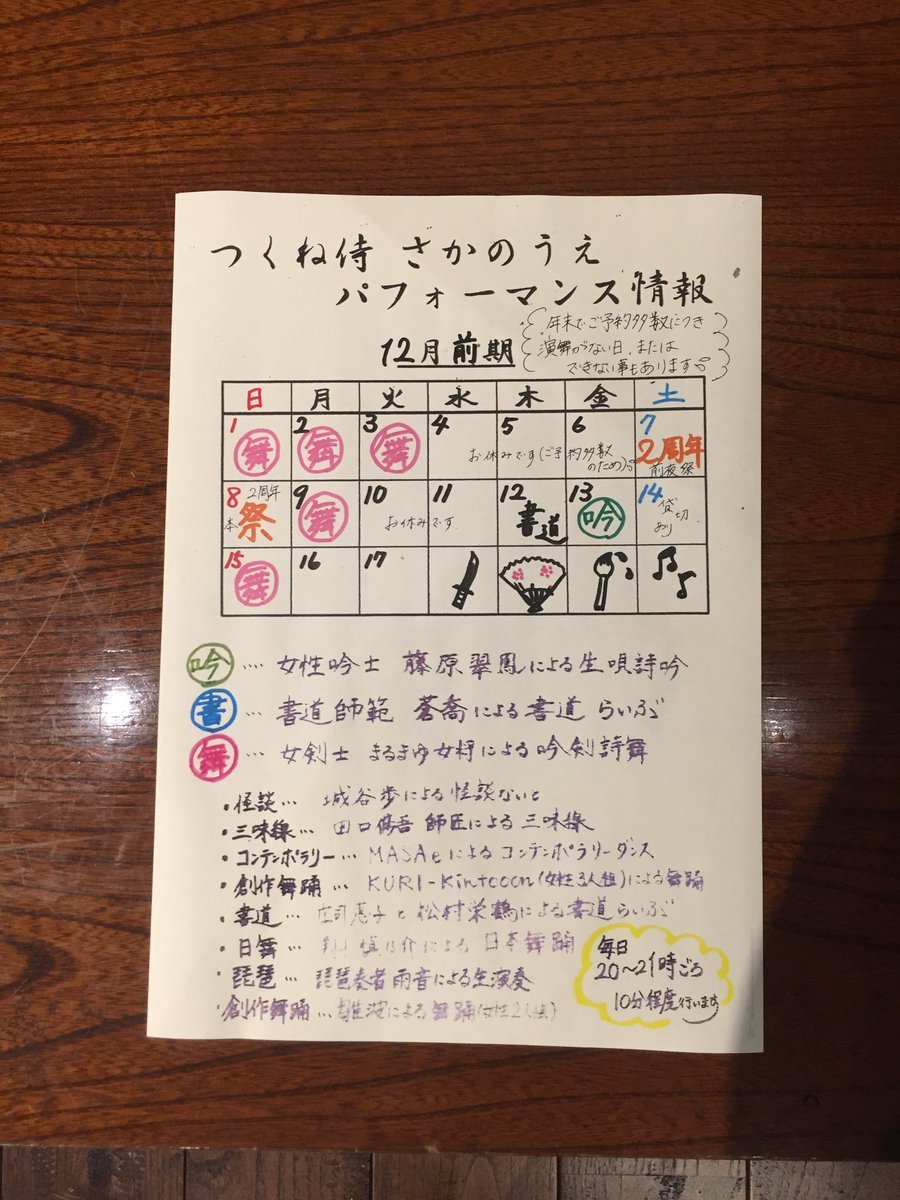 つくね侍 さかのうえ
パフォーマンス情報
12月前期
年末でご予約多数につき
演舞がない日、または
できない事もあります
日 月 火 水 木 金 土
1 2 3 4 5 6 7
舞 舞 舞 お休みです(ご予約多数のため) 2周年
前夜祭
8 9 10 11 12 13 14
2周年
本祭 舞 お休みです 書道 吟 貸切
あり
15 16 17
舞
吟 … 女性吟士 藤原翠鳳による生唄詩吟
書 … 書道師範 蒼喬による書道 らいぶ
舞 … 女剣士 まるまゆ女将による吟剣詩舞
・怪談… 城谷歩による怪談ないと
・三味線… 田口 師匠による三味線
・コンテンポラリー… MASAeによるコンテンポラリーダンス
・創作舞踊… KURI-Kintooon(女性3人組)による舞踊
・書道… 庄司 子と松村栄鶴による書道らいぶ
・日舞… 介による日本舞踊
・琵琶… 琵琶奏者雨音による生演奏
・創作舞踊… 波による舞踊(女性2
毎日
20〜21時ごろ
10分程度行います